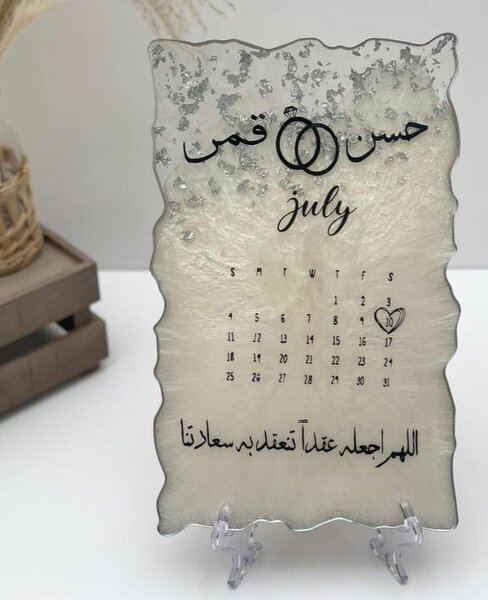 حسن قمر
july
S M T W T F S
1 2 3
4 5 6 7 8 9 10
11 12 13 14 15 16 17
18 19 20 21 22 23 24
25 26 27 28 29 30 31
اللهم اجعله عقداً تنعقد به سعادتنا